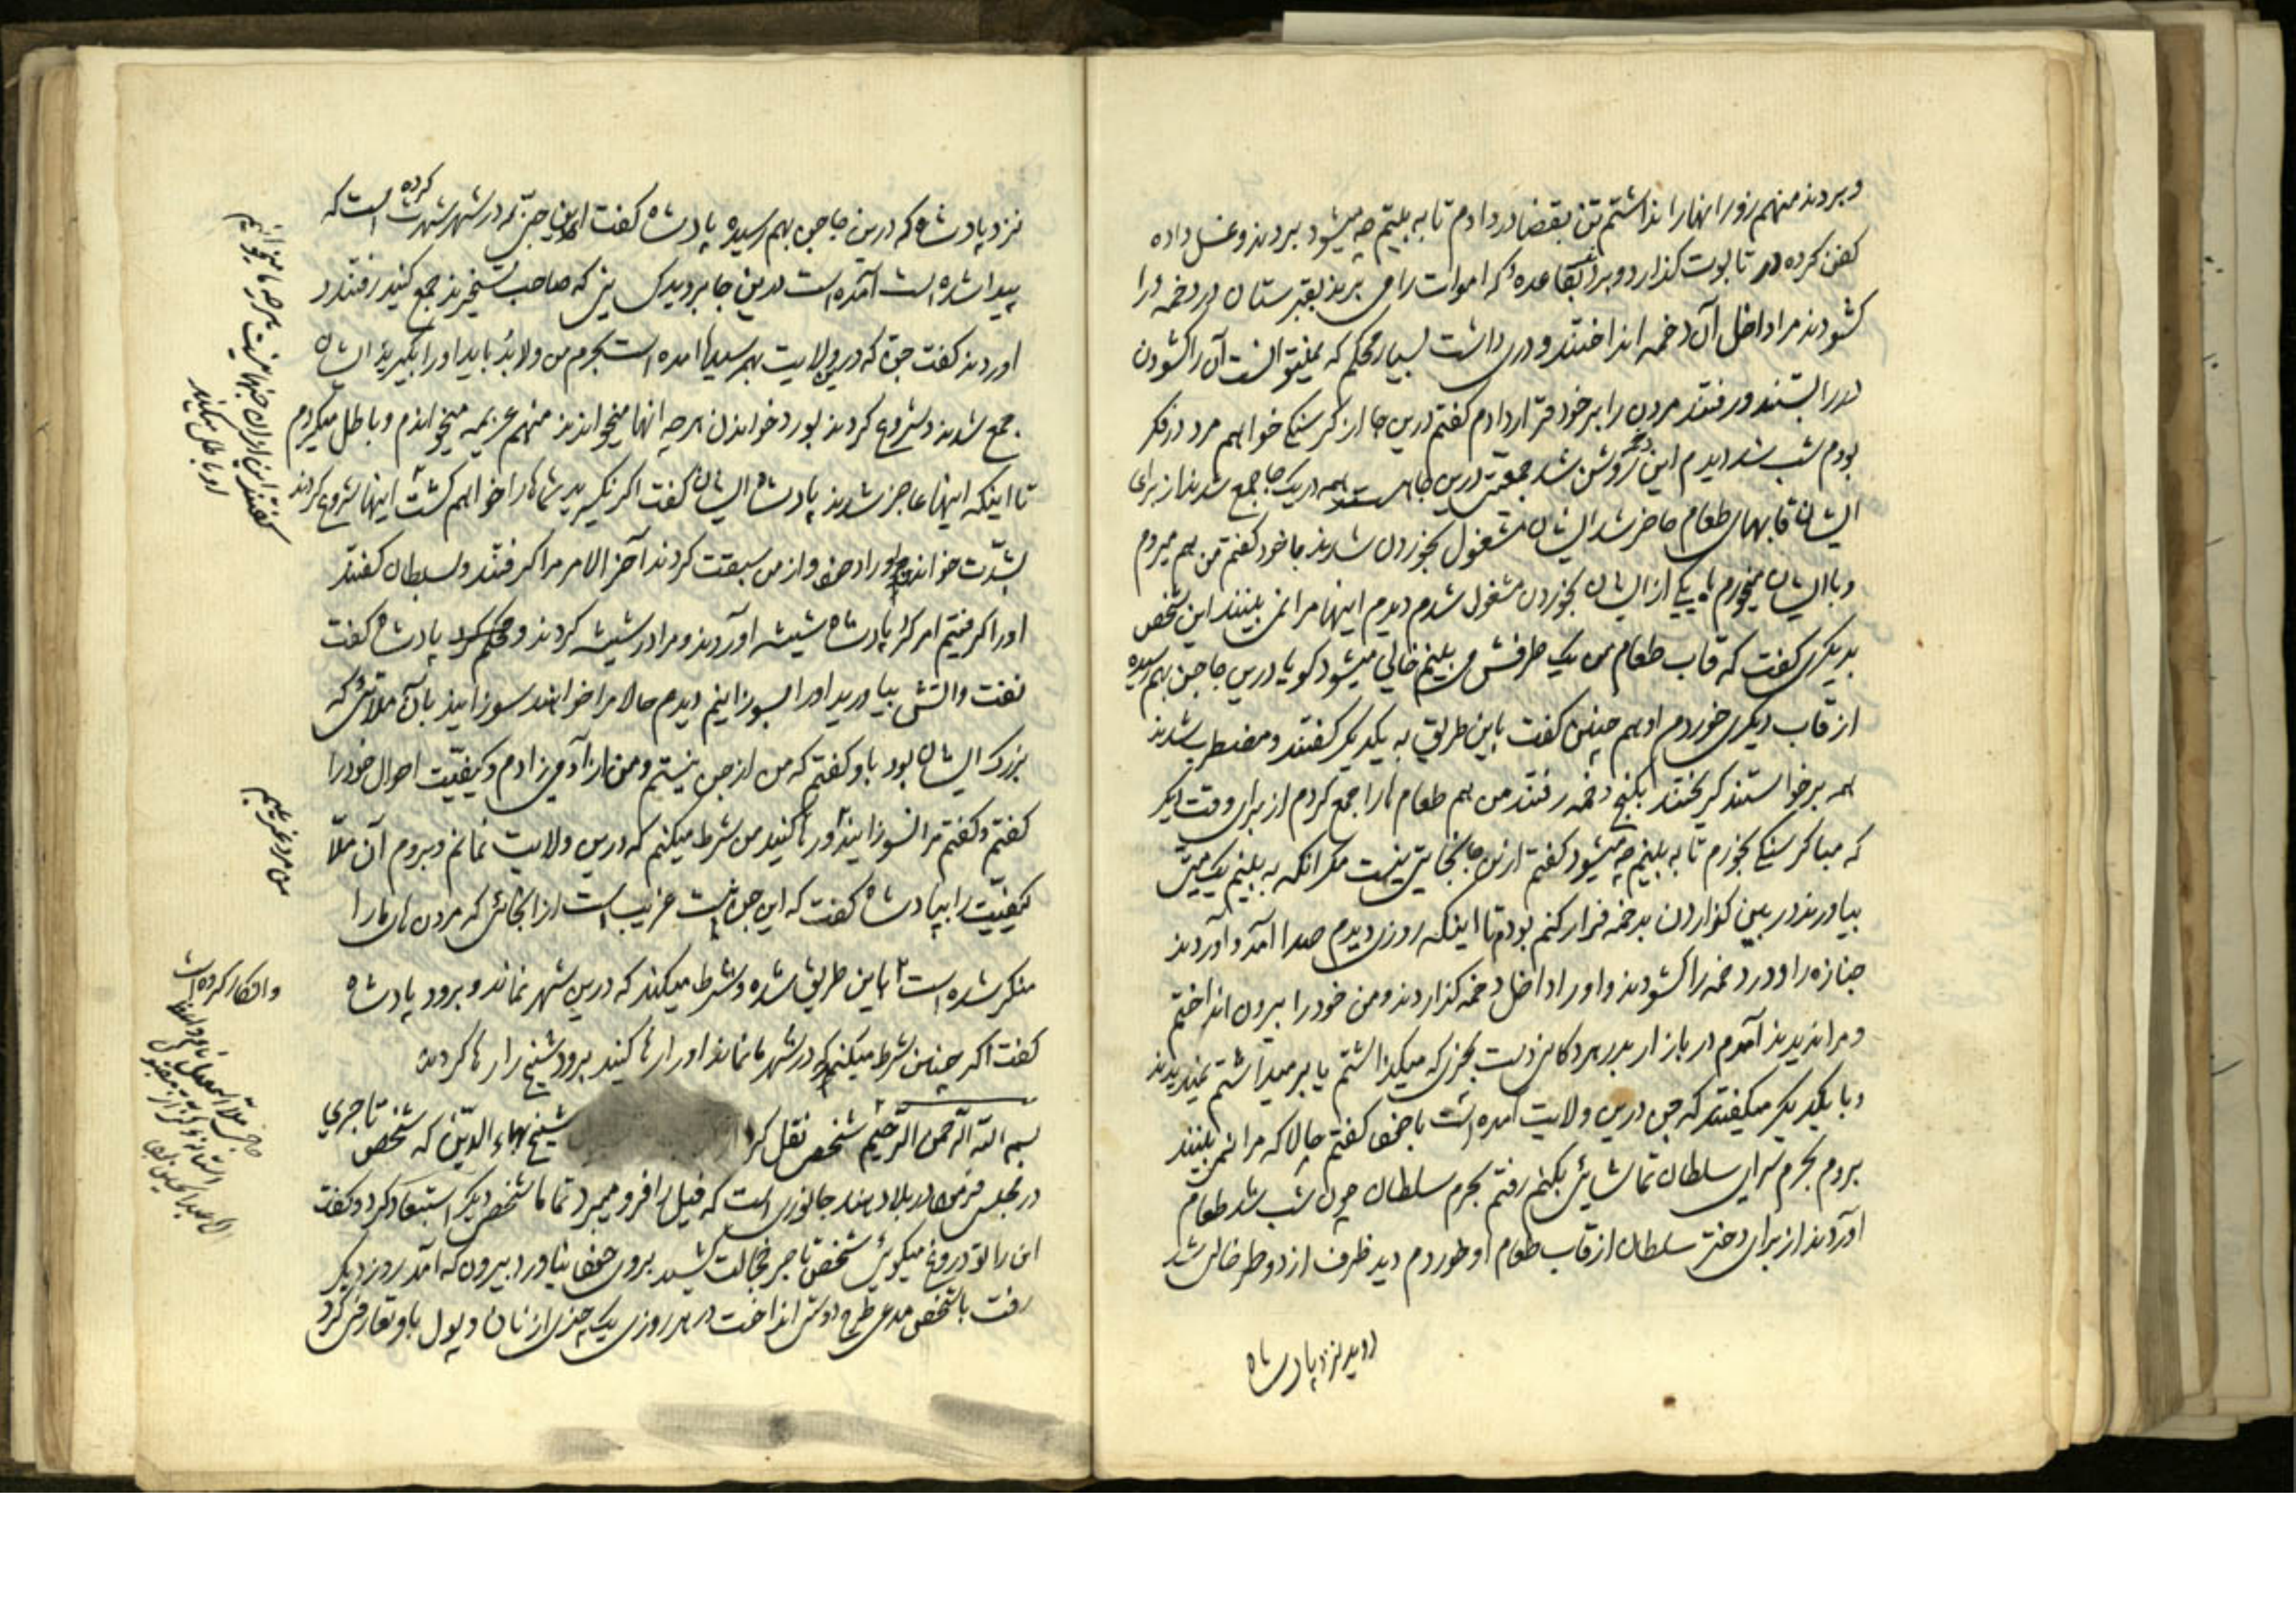 و بردند منهم زور انهارا نداشتم تن بقضا در دادم تا به بینم چه میشود بردند و غسل داده
کفن کرده در تابوت کذارد و برد بقاعدهٔ که اموات را می برند بقبرستان در دخمه را
کشودند مرا داخل آن دخمه انداختند و دری داشت بسیار محکم که نمیتوانست آن را کشودن
در را بستند و رفتند مردن را بر خود قرار دادم کفتم درین جا از کرسنکی خواهم مرد در فکر
بودم شب شد دیدم این روشن شد جمعیتی درین جا همه در یک جا جمع شدند از برای
ایشان قابهای طعام حاضر شد ایشان مشغول بخوردن شدند با خود کفتم من هم میروم
و با ایشان میخورم با یکی از ایشان بخوردن مشغول شدم دیدم اینها مرا نمی بینند این شخص
بدیکری کفت که قاب طعام من یک طرفش می بینم خالی میشود کویا درین جا جن بهم رسیده
از قاب دیکری خوردم او هم چنین کفت باین طریق به یکدیکر کفتند و مضطرب شدند
همه برخواستند کریختند بکنج دخمه رفتند من هم طعام ها را جمع کردم از برای وقت دیکر
که مبادا کرسنکی بخورم تا به بینم چه میشود کفتم ازین جا نجاتی نیست مکر انکه به بینم یک میتی
بیاورند در بین کذاردن بدخمه فرار کنم بودم تا اینکه روزی دیدم صدا آمد و آوردند
جنازه را و در دخمه را کشودند و او را داخل دخمه کذاردند و من خود را بیرون انداختم
و مرا ندیدند آمدم در بازار بدر هر دکانی دست بچیزی که میکذاشتم یا بر میداشتم نمیدیدند
و با یکدیکر میکفتند که جن درین ولایت آمده است با خود کفتم حالا که مرا نمی بینند
بروم بحرم سرای سلطان تماشایی بکنم رفتم بحرم سلطان چون شب شد طعام
اوردند از برای دختر سلطان از قاب طعام او خوردم دید ظرف از دو طرف خالی شد
دوید نزد پادشاه
نزد پادشاه که درین جا جن بهم رسیده پادشاه کفت این جن که در شهر شهرت کرده است که
پیدا شده است آمده است درین جا بروید کسانی که صاحب تسخیرند جمع کنید رفتند و
اوردند کفت جنی که درین ولایت بهم رسیده آمده است بحرم من و لابد باید او را بکیرید ایشان
جمع شدند و شروع کردند بورد خواندن هر چه انها میخواندند منهم عزیمه میخواندم و باطل میکردم
تا اینکه اینها عاجز شدند پادشاه ایشان کفت اکر نکیرید شماها را خواهم کشت اینها شروع کردند
بشدت خواندن اوراد خود و از من سبقت کردند آخر الامر مرا کرفتند و بسلطان کفتند
او را کرفتیم امر کرد پادشاه شیشه آوردند و مرا در شیشه کردند و پادشاه کفت
نفت و آتش بیاورید او را بسوزانیم دیدم حالا مرا خواهند سوزانید بآن ملائی که
بزرک ایشان بود باو کفتم که من از جن نیستم و من از آدمی زادم و کیفیت احوال خود را
کفتم و کفتم مرا نسوزانید و رها کنید من شرط میکنم که درین ولایت نمانم و بروم آن ملا
کیفیت را بپادشاه کفت که این جن نیست غریب است از انجائی که مردن های ما را
منکر شده است باین طریق شده و شرط میکند که درین شهر نماند و برود پادشاه
کفت اکر چنین شرط میکند که در شهر ما نماند او را رها کنید برود شیخ را رها کردند
بسم الله الرحمن الرحیم شخصی نقل کرد شیخ بهاء الدین که شخص تاجری
در مجلس در بلاد هند جانوری است که فیل را فرو میبرد تماما شخص دیکر استبعاد کرد و کفت
این را تو دروغ میکوئی شخص تاجر خجالت کشید بروی خود نیاورد بیرون که آمد روز دیکر
رفت با شخص مدعی طرح دوستی انداخت هر روزی یک چیزی از نان و پول باو تعارف کرد
کفتند این اوراد جنها نیست هر چه ما میخوانیم
او باطل میکند
من مرد غریبم
و انکار کرده است